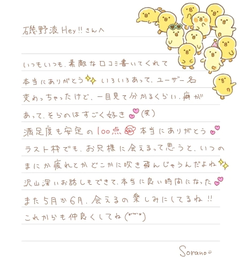 磯野波Hey!!さんへ
いつもいつも、素敵な口コミ書いてくれて
本当にありがとう いろいろあって、ユーザー名
変わっちゃったけど、一目見て分かるくらい、癖が
あって、そらのはすごく好き (笑)
満足度も安定の100点 本当にありがとう
ラスト枠でも、お兄様に会えるって思うと、いつの
まにか疲れてたどこかに吹き飛んじゃうんだよね
沢山深いお話しもできて、本当に良い時間になった
また5月か6月、会えるの楽しみにしてるね!!
これからも仲良くしてね
Sorano